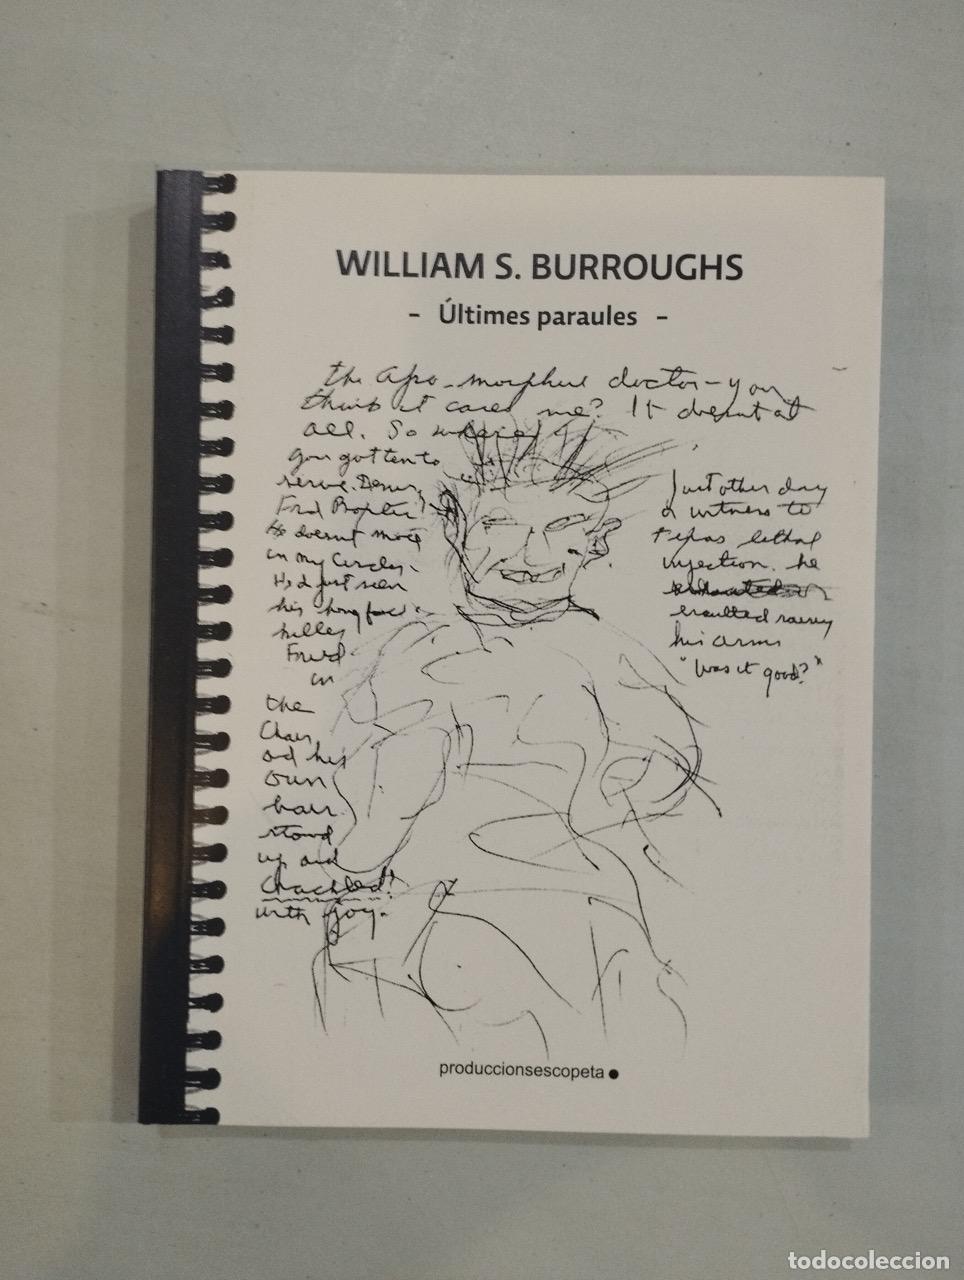 WILLIAM S. BURROUGHS
- Últimes paraules -
the apo-morphine doctor - you
think it cares me? It doesnt at
all. So where
you gotten to
serve.
He doesnt move
in my circles.
He'd just seen
his
killer
Fried
in
the
Chair
and his
own
hair
stood
up and
Crackled!
with joy.
Just other day
a witness to
texas lethal
injection. he
exulted
his arms
"Was it good?"
produccionsescopeta
todocoleccion